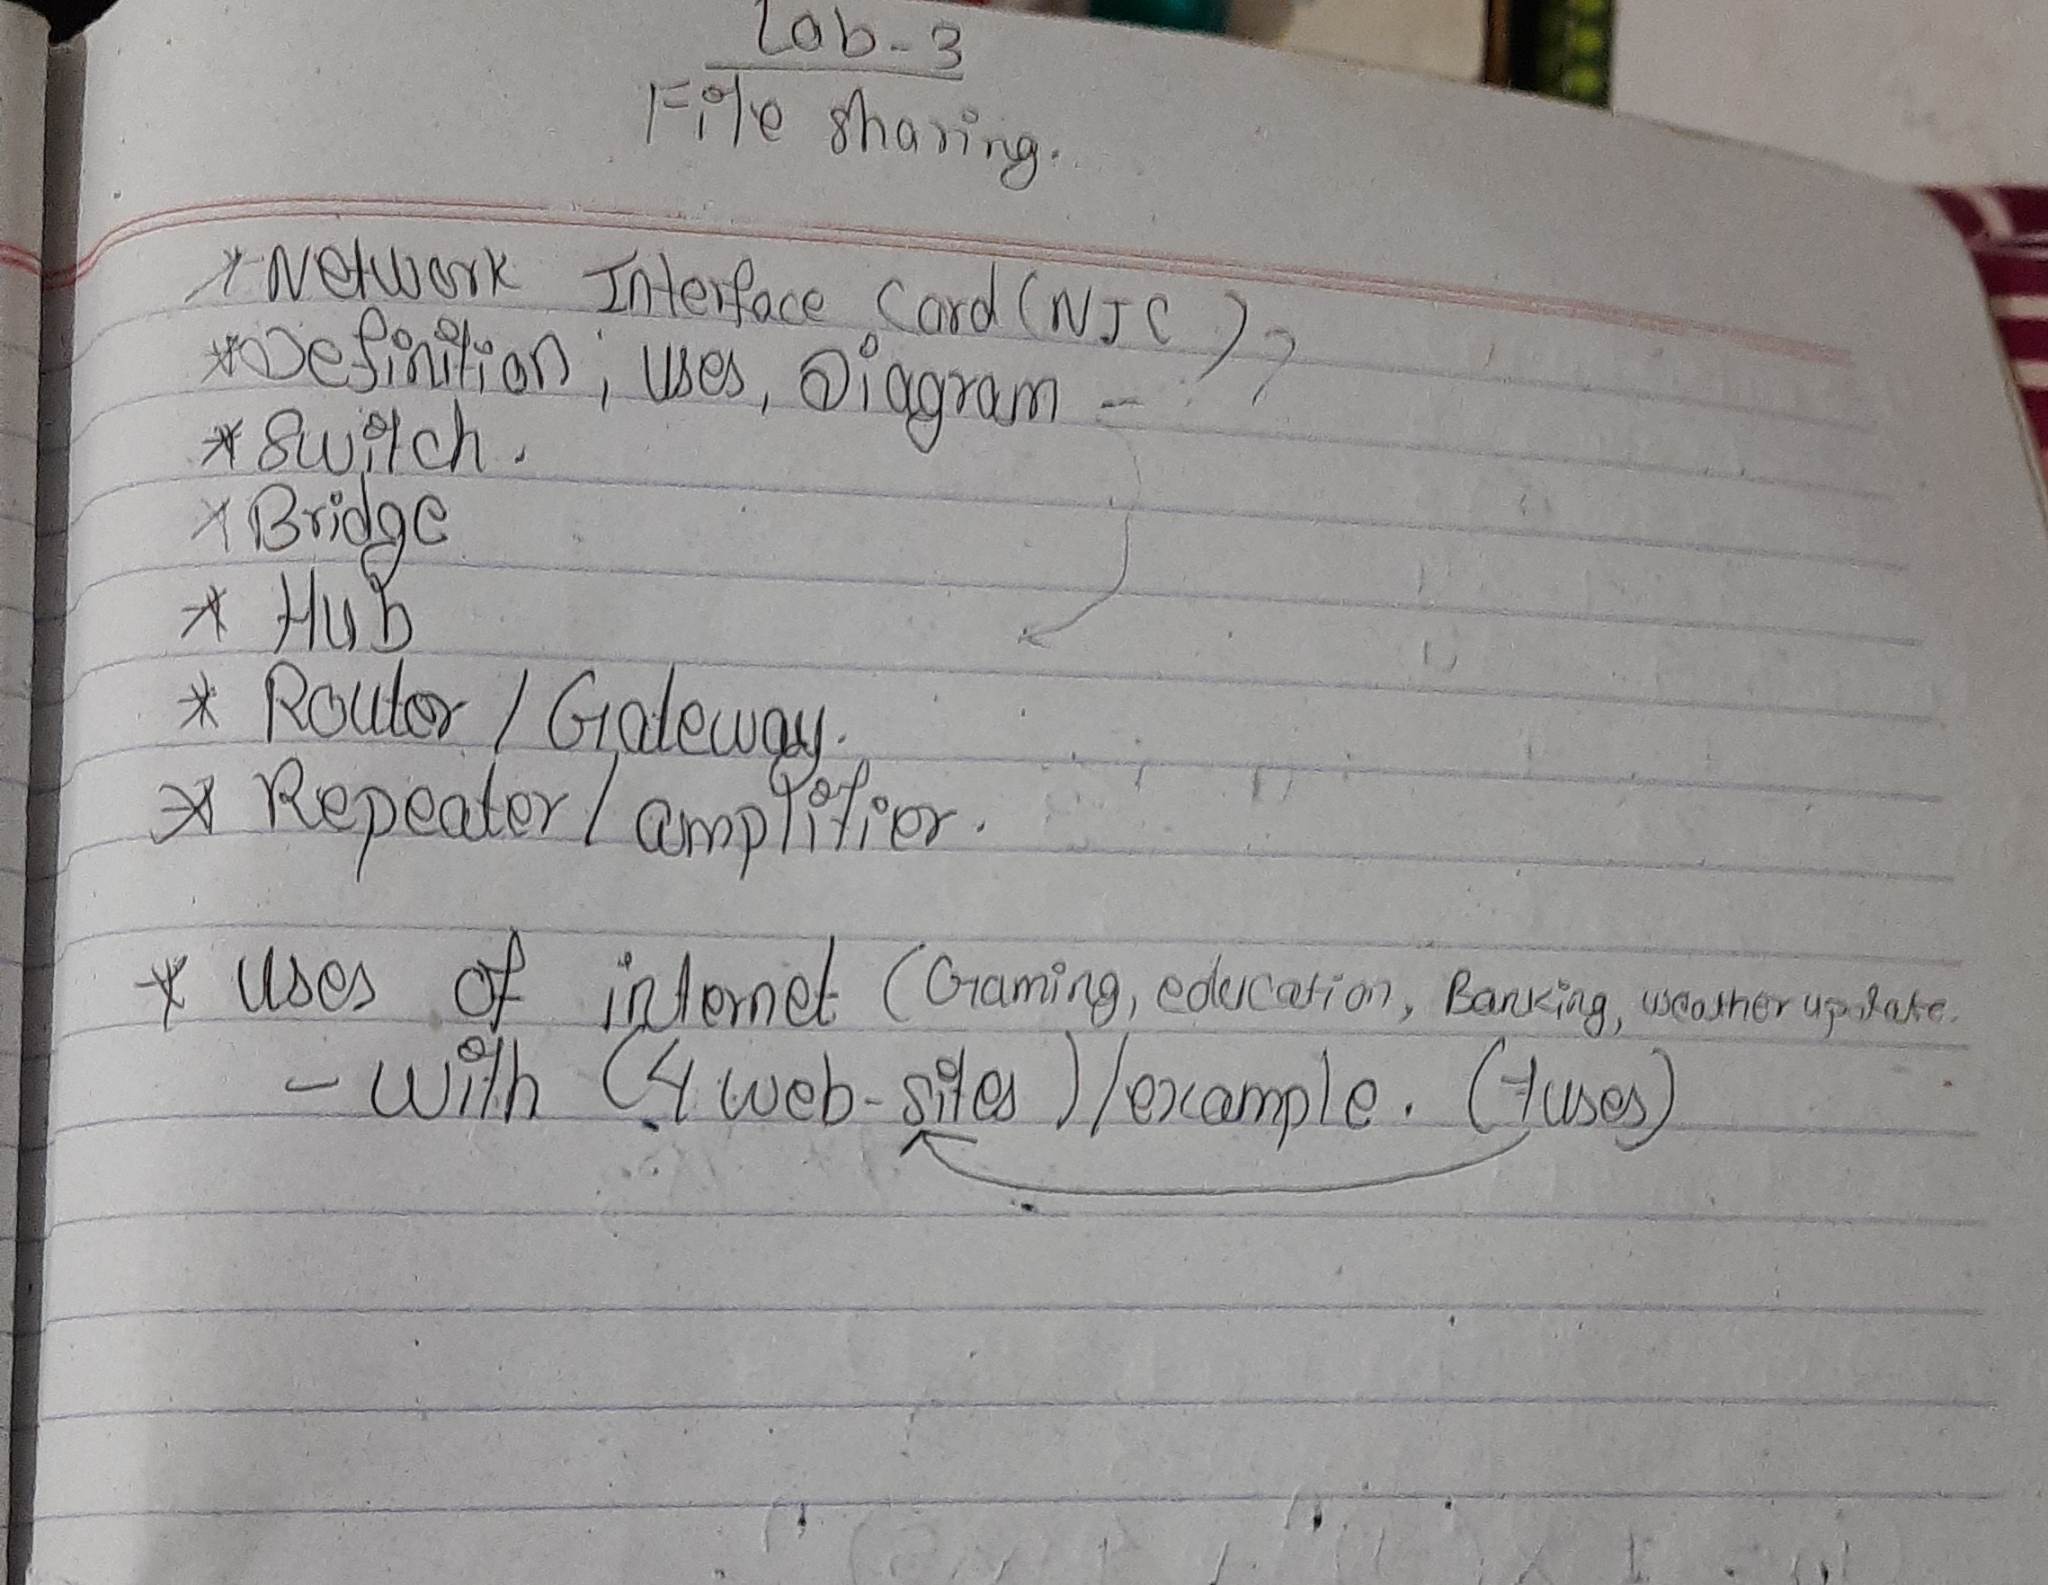 Lab-3
File sharing.
* Network Interface Card (NIC)?
* Definition, uses, Diagram -
* Switch.
* Bridge
* Hub
* Router / Gateway.
* Repeater / amplifier.
* uses of internet (Gaming, education, Banking, weather update.
- with (4 web-sites) / example. (7 uses)